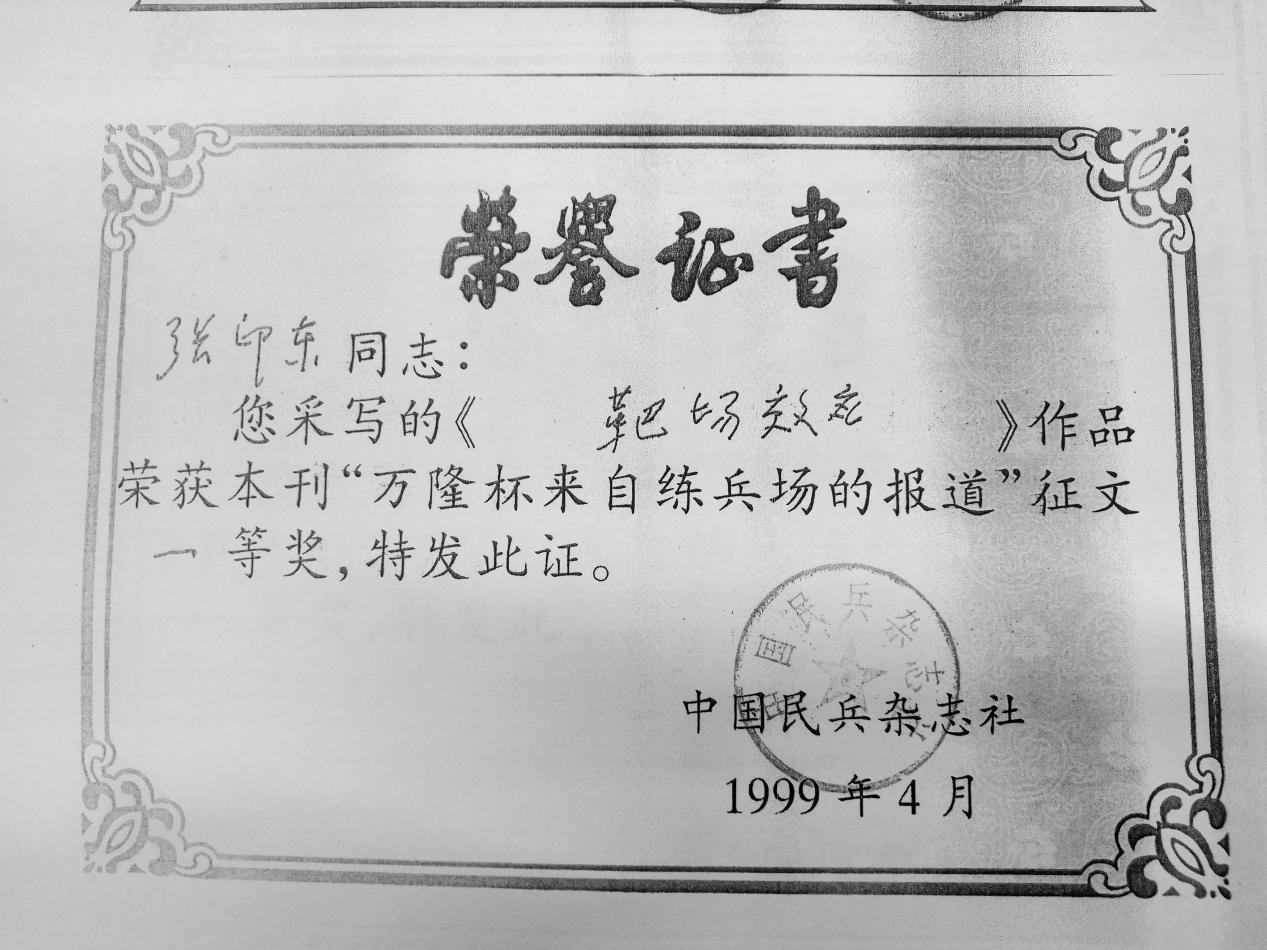 榮譽证书
张印东同志：
您采写的《靶场效应》作品
荣获本刊“万隆杯来自练兵场的报道”征文
一等奖，特发此证。
国民兵杂志
中国民兵杂志社
1999年4月